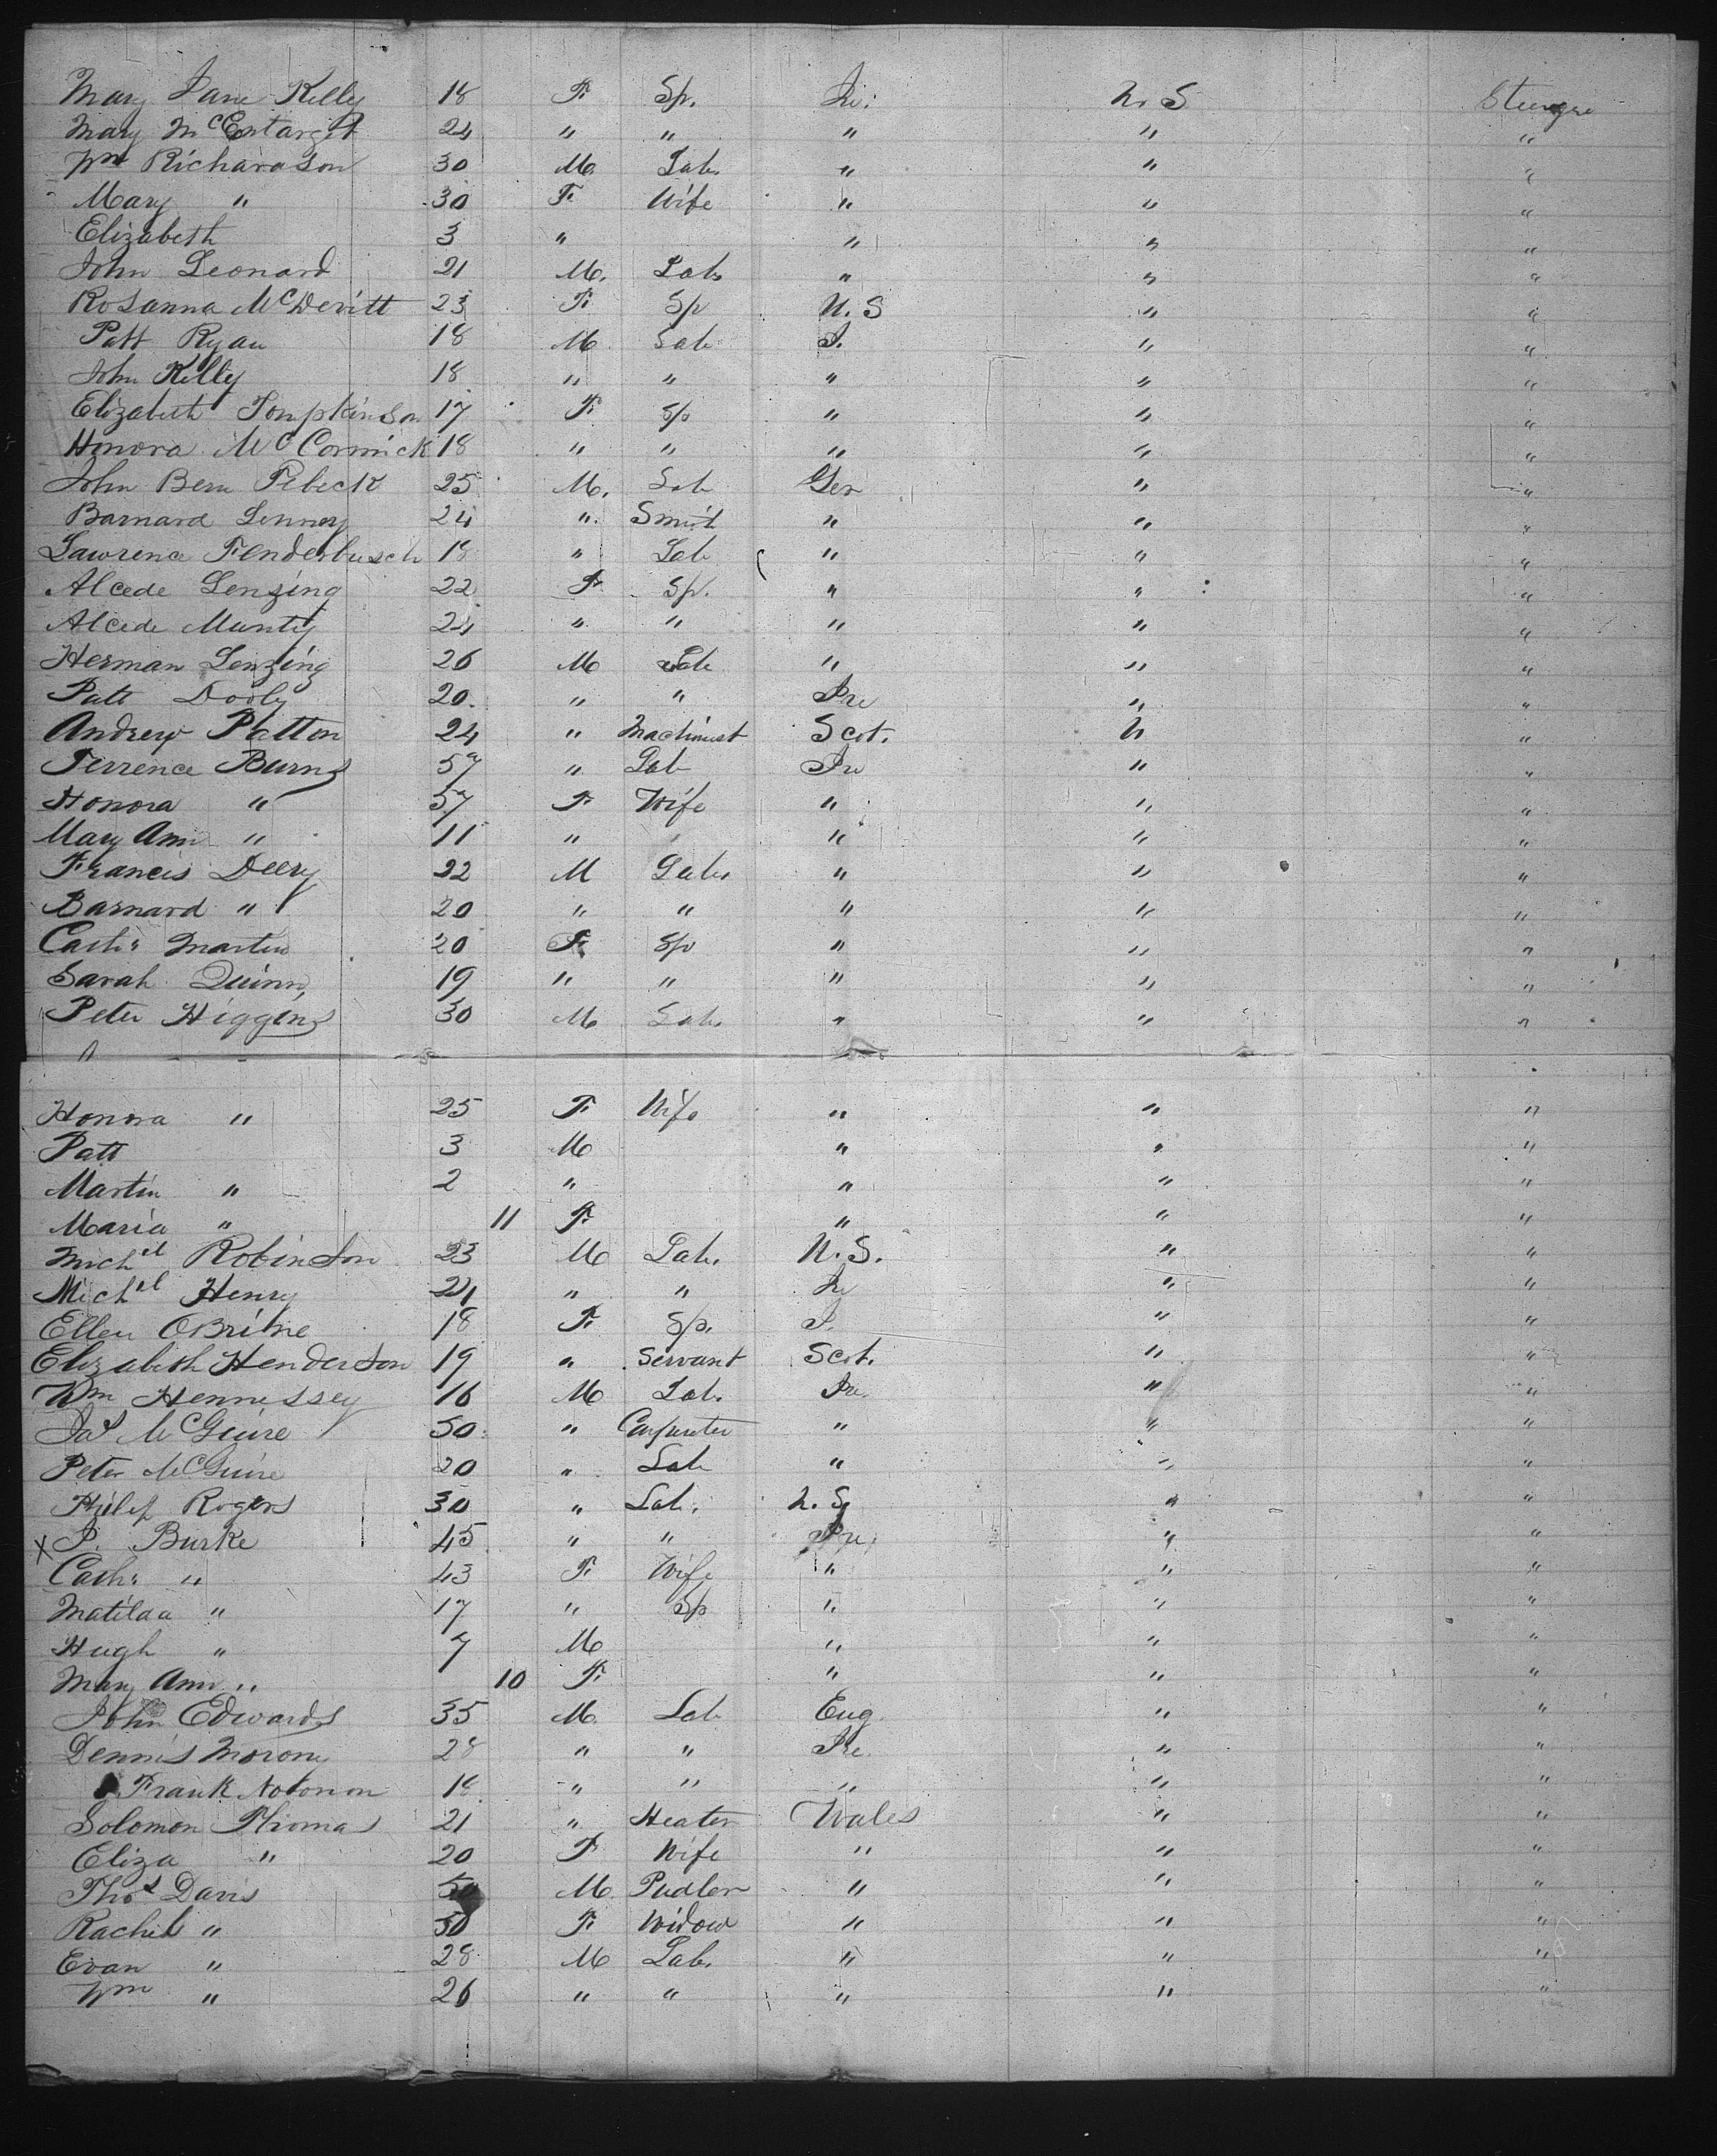 Mary Jane Kelly 18 F Sp. Ire: U. S Steerage
Mary McEntarget 24 " " " " "
Wm Richardson 30 M. Lab. " " "
Mary " 30 F. Wife " " "
Elizabeth 3 " " " "
John Leonard 21 M. Lab. " " "
Rosanna McDevitt 23 F. Sp U. S " "
Patt Ryan 18 M Lab I. " "
John Kelly 18 " " " " "
Elizabeth Tompkinson 17 F. Sp " " "
Honora McCormick 18 " " " " "
John Bern Pebeck 25 M. Lab Ger " "
Barnard Lennoy 24 " Smith " " "
Lawrence Fenderbusch 18 " Lab " " "
Alcede Lenzing 22 F Sp. " " "
Alcede Munty 24 " " " " "
Herman Lenzing 26 M Lab " " "
Patt Dooly 20. " " Ire " "
Andrew Patton 24 " Machinist Scot. " "
Terrence Burns 57 " Lab Ire " "
Honora " 57 F Wife " " "
Mary Ann " 11 " " " "
Francis Deery 22 M Lab. " " "
Barnard " 20 " " " " "
Cath: Martin 20 F. Sp " " "
Sarah Quinn 19 " " " " "
Peter Higgins 30 M Lab. " " "
Honora " 25 F. Wife " " "
Patt 3 M " " "
Martin " 2 " " " "
Maria " 11 F. " " "
Michel Robinson 23 M Lab. U. S. " "
Michel Henry 24 " " Ire " "
Ellen OBrine 18 F. Sp. I. " "
Elizabeth Henderson 19 " Servant Scot. " "
Wm Hennessey 16 M Lab. Ire. " "
Jas McGuire 50 " Carpenter " " "
Peter McGuire 20 " Lab " " "
Philip Rogers 30 " Lab. U. S " "
x P. Burke 45 " " Ire " "
Cath: " 43 F. Wife " " "
Matilda " 17 " Sp " " "
Hugh " 7 M " " "
Mary Ann " 10 F. " " "
John Edwards 35 M. Lab Eng. " "
Dennis Morony 28 " " Ire. " "
Frank 18 " " " " "
Solomon Thomas 21 " Heater Wales " "
Eliza " 20 F Wife " " "
Thos Davis 50 M. Pudler " " "
Rachel " 50 F. Widow " " "
Evan " 28 M Lab. " " "
Wm " 26 " " " " "